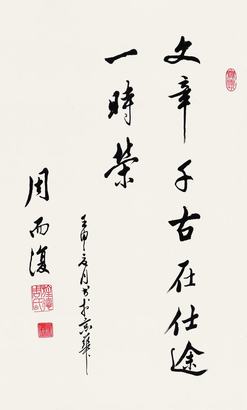 文章千古在仕途
一時榮
壬申六月書於京華
周而復